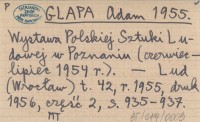 P
GLAPA Adam 1955.
Wystawa Polskiej Sztuki Lu-
dowej w Poznaniu (czerwiec-
lipiec 1954 r.). — Lud
(Wrocław) t. 42, r. 1955, druk
1956, część 2, s. 935-937.
MT